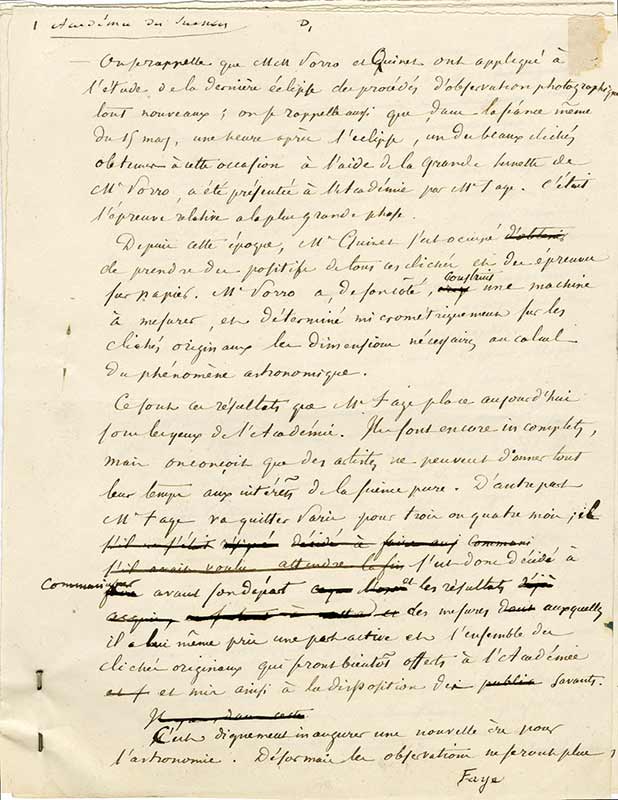 1 Académie des Sciences
On se rappelle que MM Porro et Quinet ont appliqué à
l'étude de la dernière éclipse des procédés d'observation photographique
tout nouveaux ; on se rappelle aussi que dans la séance même
du 15 mars, une heure après l'éclipse, un des beaux clichés
obtenus à cette occasion à l'aide de la grande lunette de
Mr Porro, a été présenté à l'Académie par Mr Faye. C'était
l'épreuve relative à la plus grande phase.
Depuis cette époque, Mr Quinet s'est occupé d'obtenir
de prendre des positifs de tous ces clichés et des épreuves
construit
sur papier. Mr Porro a, de son côté, une machine
à mesurer, et déterminé micrométriquement sur les
clichés originaux les dimensions nécessaires au calcul
du phénomène astronomique.
Ce sont ces résultats que Mr Faye place aujourd'hui
sous les yeux de l'Académie. Ils sont encore incomplets,
mais on conçoit que des artistes ne peuvent donner tout
leur temps aux intérêts de la science pure. D'autre part
Mr Faye va quitter Paris pour trois ou quatre mois ; il
s'il s'était décidé à faire
s'il avait voulu attendre la fin s'est donc décidé à
communiquer avant son départ et les résultats déjà
acquis, des mesures dont auxquelles
il a lui même pris une part active et l'ensemble des
clichés originaux qui seront bientôt offerts à l'Académie
et mis ainsi à la disposition des savants.
C'est dignement inaugurer une nouvelle ère pour
l'astronomie. Désormais les observations ne seront plus
Faye